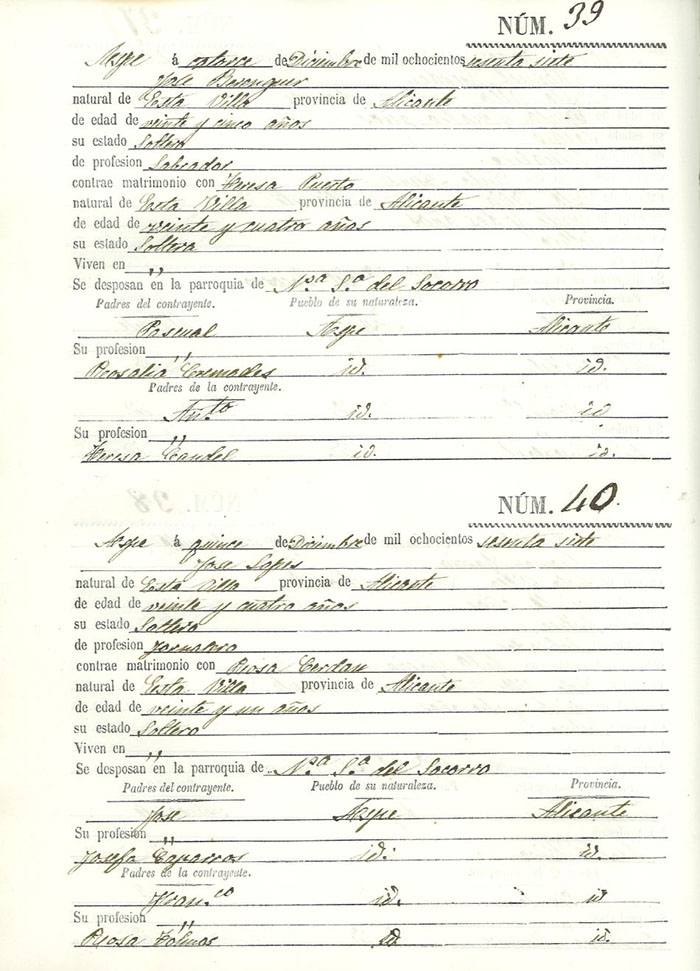 NÚM. 39
Aspe á catorce de Diciembre de mil ochocientos sesenta siete
Jose Berenguer
natural de Esta Villa provincia de Alicante
de edad de veinte y cinco años
su estado Soltero
de profesion Labrador
contrae matrimonio con Teresa Puerto
natural de Esta Villa provincia de Alicante
de edad de veinte y cuatro años
su estado Soltera
Viven en ,,
Se desposan en la parroquia de Nª Sª del Socorro
Padres del contrayente. Pueblo de su naturaleza. Provincia.
Pascual Aspe Alicante
Su profesion ,,
Rosalia Cremades id. id.
Padres de la contrayente.
Anto id. id
Su profesion ,,
Teresa Candel id. id.
NÚM. 40.
Aspe á quince de Diciembre de mil ochocientos sesenta siete
Jose Lopes
natural de Esta Villa provincia de Alicante
de edad de veinte y cuatro años
su estado Soltero
de profesion Jornalero
contrae matrimonio con Rosa Cerdan
natural de Esta Villa provincia de Alicante
de edad de veinte y un años
su estado Soltero
Viven en ,,
Se desposan en la parroquia de Nª Sª del Socorro
Padres del contrayente. Pueblo de su naturaleza. Provincia.
Jose Aspe Alicante
Su profesion ,,
Josefa id. id.
Padres de la contrayente.
Franco id. id
Su profesion ,,
Rosa id id.